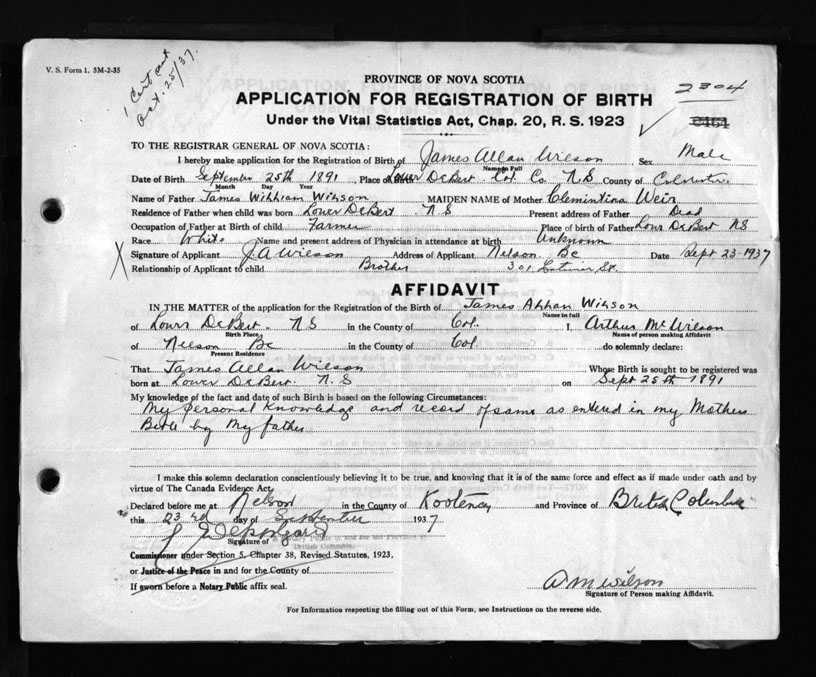 V. S. Form 1. 5M-2-35
1 Cert
Oct. 25/37.
PROVINCE OF NOVA SCOTIA
APPLICATION FOR REGISTRATION OF BIRTH
Under the Vital Statistics Act, Chap. 20, R. S. 1923
2304
TO THE REGISTRAR GENERAL OF NOVA SCOTIA:
I hereby make application for the Registration of Birth of James Allan Wilson Sex Male
Name in Full
Date of Birth September 25th 1891 Place of Birth Lower DeBert. Col. Co. N S County of Colchester
Month Day Year
Name of Father James William Wilson MAIDEN NAME of Mother Clemintina Weir
Residence of Father when child was born Lower DeBert. N S Present address of Father Dead
Occupation of Father at Birth of Child Farmer Place of Birth of Father DeBert NS
Race White Name and present address of Physician in attendance at birth Unknown
Signature of Applicant J. A Wilson Address of Applicant Nelson. Bc Date Sept 23-1937
Relationship of Applicant to child Brother 301 St.
AFFIDAVIT
IN THE MATTER of the application for the Registration of the Birth of James Allan Wilson
Name in full
of Lower DeBert. N S in the County of Col. I, Arthur Mc Wilson
Birth Place Name of person making Affidavit
of Nelson Bc in the County of Col. do solemnly declare:
Present Residence
That James Allan Wilson Whose Birth is sought to be registered was
born at Lower DeBert. N. S on Sept 25th 1891
My knowledge of the fact and date of such Birth is based on the following Circumstances:
My personal Knowledge and record of same as entered in my Mothers
by my father
I make this solemn declaration conscientiously believing it to be true, and knowing that it is of the same force and effect as if made under oath and by
virtue of The Canada Evidence Act.
Declared before me at Nelson in the County of Kootenay and Province of British Columbia
this 23 rd day of September 1937
Signature of
Commissioner under Section 5, Chapter 38, Revised Statutes, 1923,
or Justice of the Peace in and for the County of
If sworn before a Notary Public affix seal.
A M Wilson
Signature of Person making Affidavit.
For Information respecting the filling out of this Form, see Instructions on the reverse side.